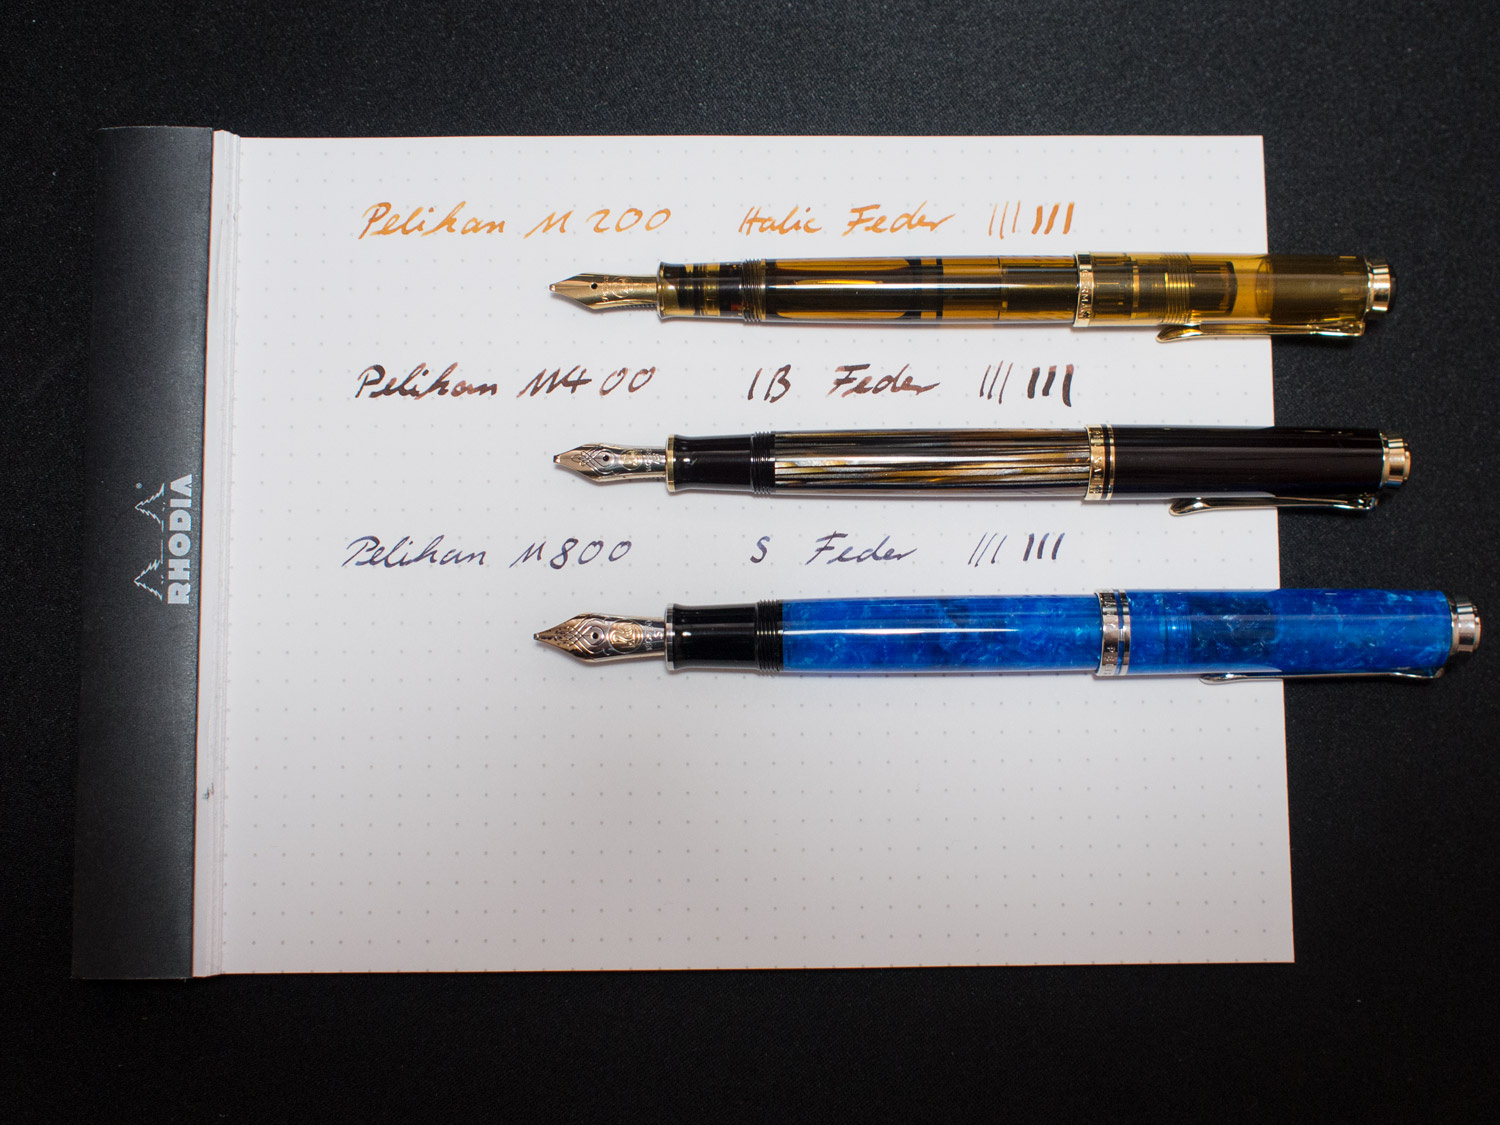 Pelikan M200 Italic Feder
Pelikan M400 IB Feder
Pelikan M800 S Feder
RHODIA